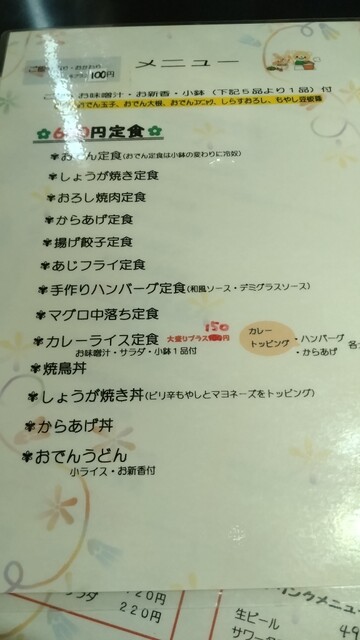 メニュー
100円
お味噌汁・お新香・小鉢（下記５品より１品）付
おでん玉子、おでん大根、おでんコンニャク、しらすおろし、もやし豆板醤
円定食
おでん定食(おでん定食は小鉢の変わりに冷奴)
しょうが焼き定食
おろし焼肉定食
からあげ定食
揚げ餃子定食
あじフライ定食
手作りハンバーグ定食(和風ソース・デミグラスソース)
マグロ中落ち定食
カレーライス定食 大盛りプラス150円
お味噌汁・サラダ・小鉢１品付
カレートッピング
・ハンバーグ
・からあげ
各
焼鳥丼
しょうが焼き丼(ピリ辛もやしとマヨネーズをトッピング)
からあげ丼
おでんうどん
小ライス・お新香付
220円
生ビール
サワー